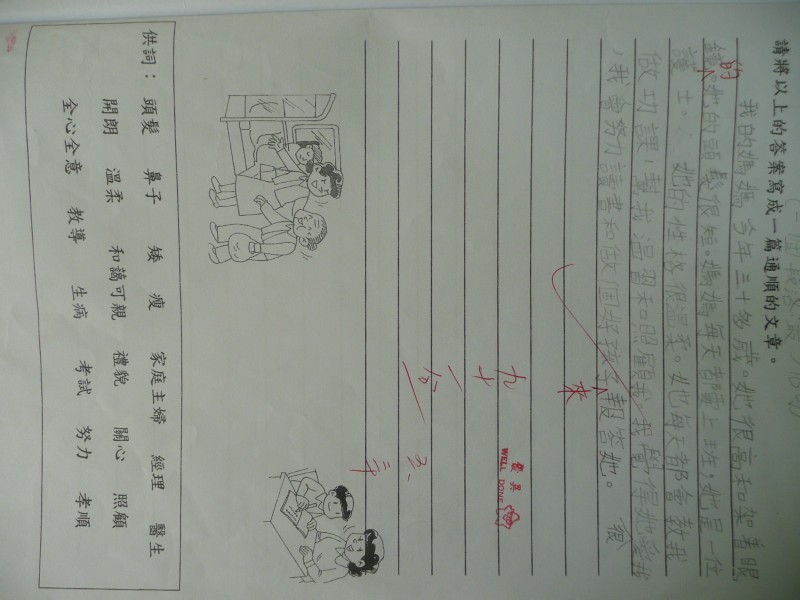 請將以上的答案寫成一篇通順的文章。
我的媽媽今年三十多歲。她很高和架着眼
鏡。她的頭髮很短。媽媽每天都要上班,她是一位
的
護士。她的性格很溫柔。她每天都會教我
做功課,幫我溫習和照顧我。我覺得她愛我
,我會努力讀書和做個好孩子報答她。 很
來
九十
WELL DONE
供詞：頭髮 鼻子 矮 瘦 家庭主婦 經理 醫生
開朗 溫柔 和藹可親 禮貌 關心 照顧
全心全意 教導 生病 考試 努力 孝順